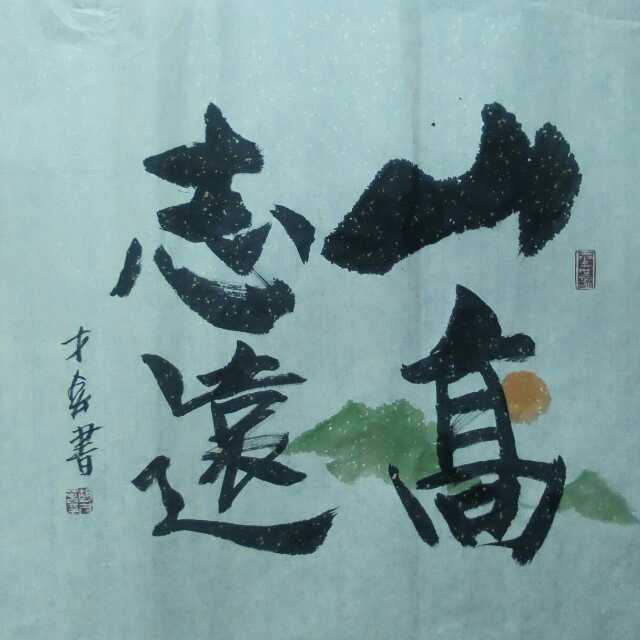 山高
志遠
才 書